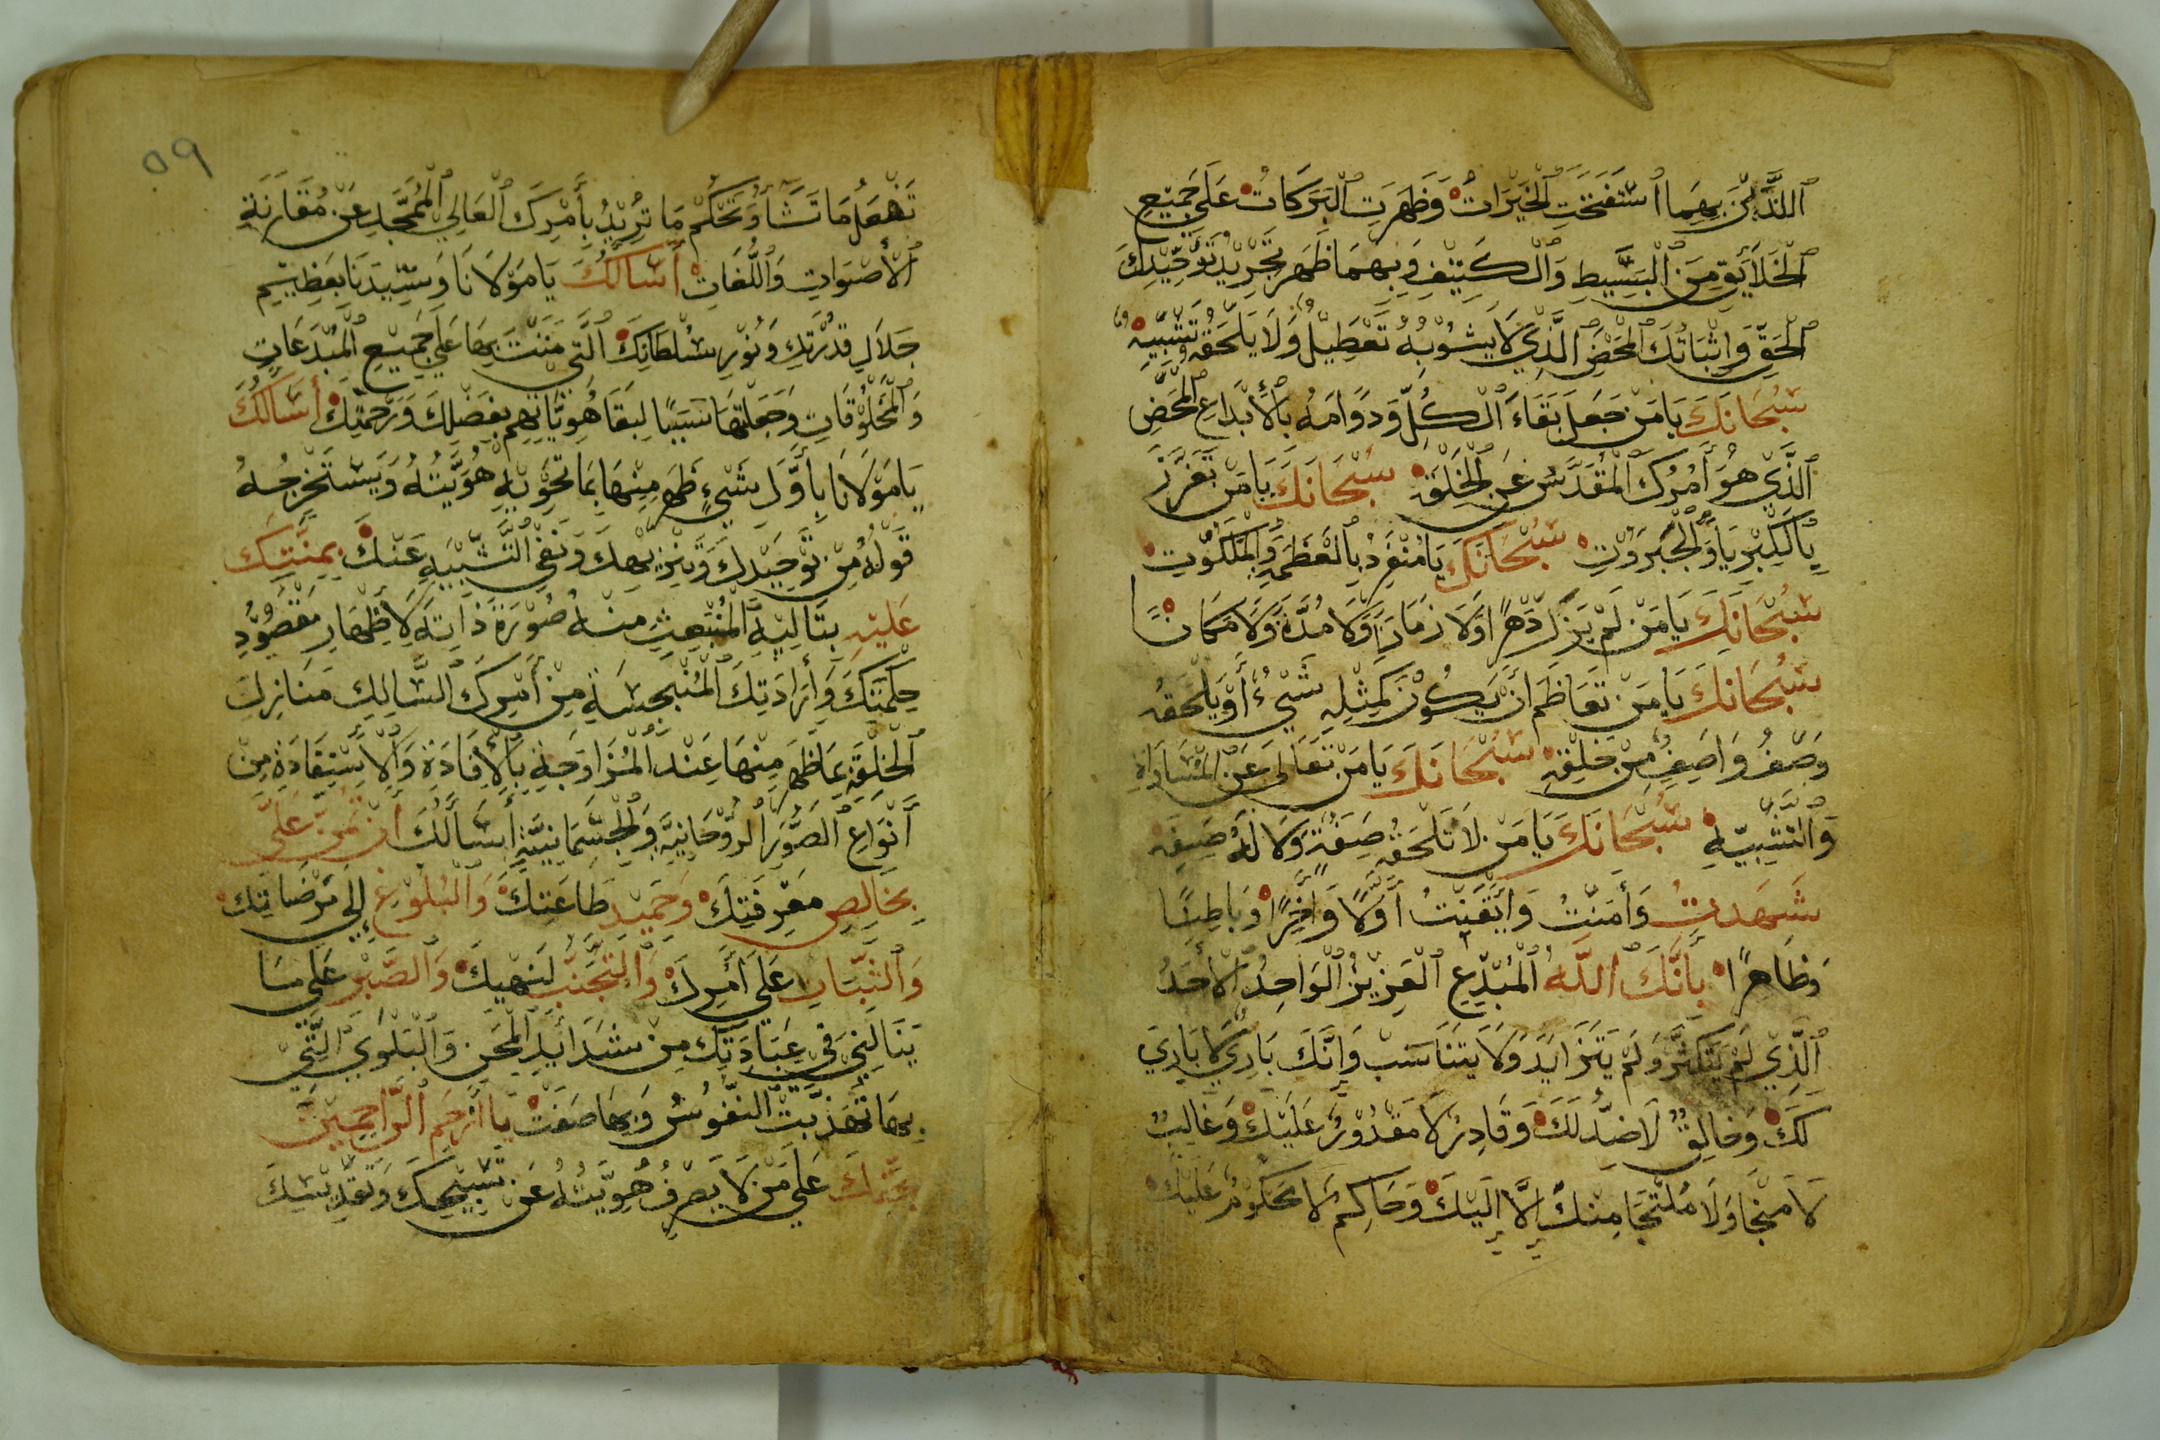 اَللَّذَيْنِ بِهِمَا اسْتَفْتَحَتِ الْخَيْرَاتُ وَظَهَرَتِ الْبَرَكَاتُ عَلَى جَمِيْعِ
الْخَلَايِقِ مِنَ الْبَسِيْطِ وَالْكَثِيْفِ وَبِهِمَا ظَهَرَ تَجْرِيْدُ تَوْحِيْدِكَ
الْحَقِّ وَاِثْبَاتُكَ الْمَحْضُ الَّذِيْ لَا يَشُوْبُهُ تَعْطِيْلٌ وَلَا يَلْحَقُهُ تَشْبِيْهٌ
سُبْحَانَكَ يَا مَنْ جَعَلَ بَقَاءَ الْكُلِّ وَدَوَامَهُ بِالْأَبْدَاعِ الْمَحْضِ
الَّذِيْ هُوَ أَمْرُكَ الْمُقَدَّسُ عَنِ الْخَلْقِ سُبْحَانَكَ يَا مَنْ تَعَزَّزَ
بِالْكِبْرِيَاءِ وَالْجَبَرُوْتِ سُبْحَانَكَ يَا مُنْفَرِدُ بِالْعَظَمَةِ وَالْمَلَكُوْتِ
سُبْحَانَكَ يَا مَنْ لَمْ يَزَلْ دَهْرًا وَلَا زَمَانًا وَلَا مُدَّةً وَلَا مَكَانًا
سُبْحَانَكَ يَا مَنْ تَعَاظَمَ اَنْ يَكُوْنَ كَمِثْلِهِ شَيْءٌ أَوْ يَلْحَقُهُ
وَصْفُ وَاصِفٍ مِنْ خَلْقِهِ سُبْحَانَكَ يَا مَنْ تَعَالَى عَنِ الْمُسَاوَاةِ
وَالتَّشْبِيْهِ سُبْحَانَكَ يَا مَنْ لَا تَلْحَقُهُ صِفَةٌ وَلَا لَهُ صِفَةٌ
شَهِدْتُ وَأَمَنْتُ وَأَيْقَنْتُ أَوَّلًا وَاٰخِرًا وَبَاطِنًا
وَظَاهِرًا بِأَنَّكَ اللّٰهُ الْمُبْدِعُ الْعَزِيْزُ الْوَاحِدُ الْأَحَدُ
الَّذِيْ لَمْ يَتَكَثَّرْ وَلَمْ يَتَزَايَدْ وَلَا يَتَنَاسَبْ وَاِنَّكَ بَارِيٌ لَا بَارِيَ
لَكَ وَخَالِقٌ لَا ضِدَّ لَكَ وَقَادِرٌ لَا مَقْدُوْرٌ عَلَيْكَ وَغَالِبٌ
لَا مَنْجَا وَلَا مُلْتَجَا مِنْكَ اِلَّا اِلَيْكَ وَحَاكِمٌ لَا مَحْكُوْمٌ عَلَيْكَ
٥٩
تَفْعَلُ مَا تَشَاءُ وَتَحْكُمُ مَا تُرِيْدُ بِأَمْرِكَ الْعَالِي الْمُمَجَّدِ عَنْ مُقَارَنَةِ
الْأَصْوَاتِ وَاللُّغَاتِ أَسْأَلُكَ يَا مَوْلَانَا وَسَيِّدَنَا بِعَظِيْمِ
جَلَالِ قُدْرَتِكَ وَنُوْرِ سُلْطَانِكَ الَّتِيْ مَنَنْتَ بِهَا عَلَى جَمِيْعِ الْمُبْدَعَاتِ
وَالْمَخْلُوْقَاتِ وَجَعَلْتَهَا سَبَبًا لِبَقَا هُوِيَّاتِهِمْ بِفَضْلِكَ وَرَحْمَتِكَ أَسْأَلُكَ
يَا مَوْلَانَا بِأَوَّلِ شَيْءٍ ظَهَرَ مِنْهَا بِمَا تَحْوِيْهِ هُوِيَّتُهُ وَيَسْتَخْرِجُهُ
قَوْلُهُ مِنْ تَوْحِيْدِكَ وَتَنْزِيْهِكَ وَنَفْيِ التَّشْبِيْهِ عَنْكَ بِمِنَّتِكَ
عَلَيْهِ بِتَالِيْهِ الْمُنْبَعِثِ مِنْهُ صُوْرَةَ ذَاتِهِ لِاِظْهَارِ مَقْصُوْدِ
حِكْمَتِكَ وَاِرَادَتِكَ الْمُنْبَجِسَةِ مِنْ أَمْرِكَ السَّالِكِ مَنَازِلَ
الْخِلْقَةِ بِمَا ظَهَرَ مِنْهَا عِنْدَ الْمُزَاوَجَةِ بِالْاِفَادَةِ وَالْاِسْتِفَادَةِ مِنْ
أَنْوَاعِ الصُّوَرِ الرُّوْحَانِيَّةِ وَالْجِسْمَانِيَّةِ أَسْأَلُكَ أَنْ تَمُنَّ عَلَيَّ
بِخَالِصِ مَعْرِفَتِكَ وَحَمِيْدِ طَاعَتِكَ وَالْبُلُوْغِ إِلَى مَرْضَاتِكَ
وَالثَّبَاتِ عَلَى أَمْرِكَ وَالتَّجَنُّبِ لِنَهْيِكَ وَالصَّبْرِ عَلَى مَا
يَنَالُنِيْ فِيْ عِبَادَتِكَ مِنْ شَدَايِدِ الْمِحَنِ وَالْبَلْوَى الَّتِيْ
بِهَا تَهَذَّبَتِ النُّفُوْسُ وَبِهَا صَفَتْ يَا أَرْحَمَ الرَّاحِمِيْنَ
عَلَى مَنْ لَا يَصْرِفُ هُوِيَّتَهُ عَنْ تَسْبِيْحِكَ وَتَقْدِيْسِكَ